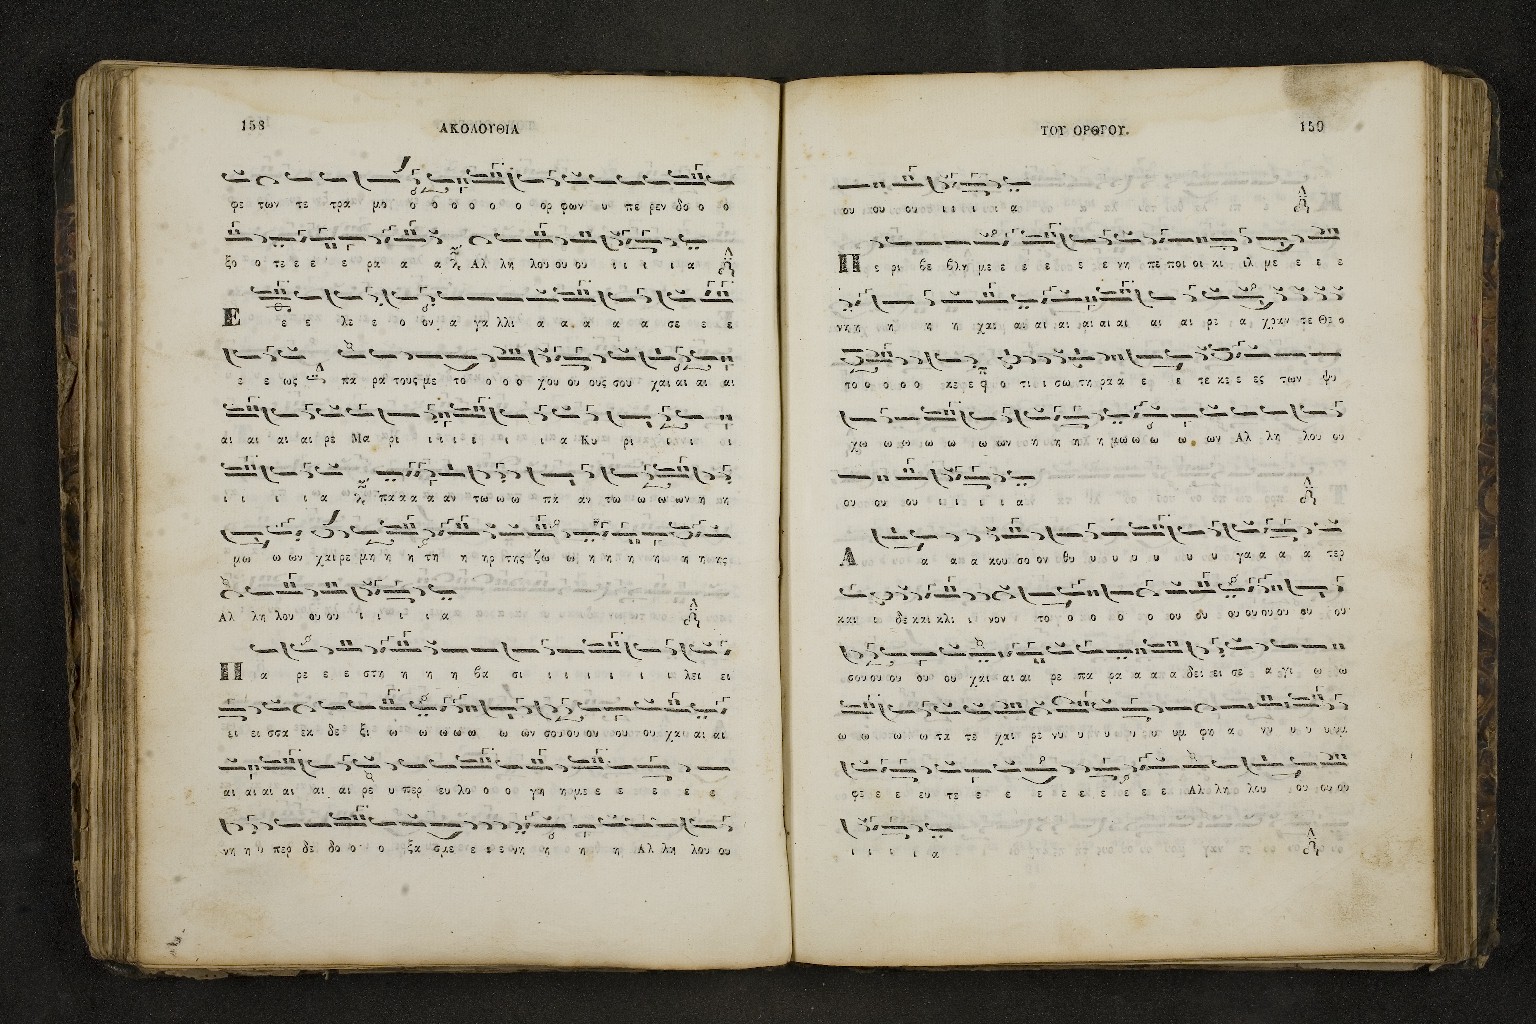 158 ΑΚΟΛΟΥΘΙΑ
φε των τε τρα μο ο ο ο ο ο ο ορ φων υ πε ρεν δο ο ο
ξο ο τε ε ε ε ε ρα α α Αλ λη λου ου ου ι ι ι ι α
Ε ε ε λε ε ο ον α γα λλι α α α α α α σε ε ε
ε ε ως πα ρα τους με το ο ο ο χου ου ους σου χαι αι αι αι
αι αι αι αι ρε Μα ρι ι ι ι ι ι ι α Κυ ρι ι ι ι
ι ι ι ι α πα α α α αν τω ω ω πα αν τω ω ω ων η η
μω ω ων χαι ρε μη η η τη η ηρ της ζω ω η η η η η η η ης
Αλ λη λου ου ου ι ι ι ι α
Π α ρε ε ε στη η η η βα σι ι ι ι ι ι ι λει ει
ει ει σσα εκ δε ξι ω ω ω ω ω ω ων σου ου ου ου ου χαι αι αι
αι αι αι αι αι αι ρε υ περ ευ λο ο ο ο γη η με ε ε ε ε ε
νη η υ περ δε δο ο ο ξα σμε ε ε ε νη η η η Αλ λη λου ου
ΤΟΥ ΟΡΘΡΟΥ. 159
ου ου ου ι ι ι ι α
Π ε ρι βε βλη με ε ε ε ε ε ε νη πε ποι οι κι ιλ με ε ε ε
νη η η η η χαι αι αι αι αι αι αι αι αι ρε α χραν τε Θε ο
το ο ο ο ο κε ε φ ο τι ι σω τη ρα α ε ε τε κε ε ες των ψυ
χω ω ω ω ω ω ων η η η η μω ω ω ω ων Αλ λη λου ου
ου ου ου ι ι ι ι α
Α α α α κου σο ον θυ υ υ υ υ υ υ γα α α α τερ
και ι δε και κλι ι νον το ο ο ο ο ου ου ου ου ου ου ου ου
σου ου ου ου ου χαι αι αι ρε πα ρα α α α δει ει σε α γι ω ω
ω ω ω ω τα τε χαι ρε νυ υ υ υ υ υ υμ φη α νυ υ υ υμ
φε ε ε ευ τε ε ε ε ε ε ε ε ε Αλ λη λου ου ου ου
ι ι ι ι α